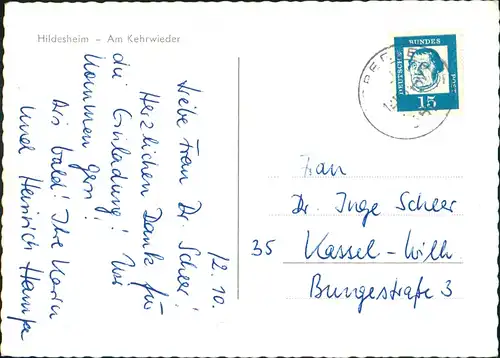 Hildesheim – Am Kehrwieder
12. 10.
Liebe Frau Dr. Scheer!
Herzlichen Dank für
die Einladung! Wir
kommen gern!
Bis bald! Ihre Karin
und Heinrich Hampe
DEUTSCHE
BUNDES
POST
15
Frau
Dr. Inge Scheer
35 Kassel-Wilh
Bungestraße 3